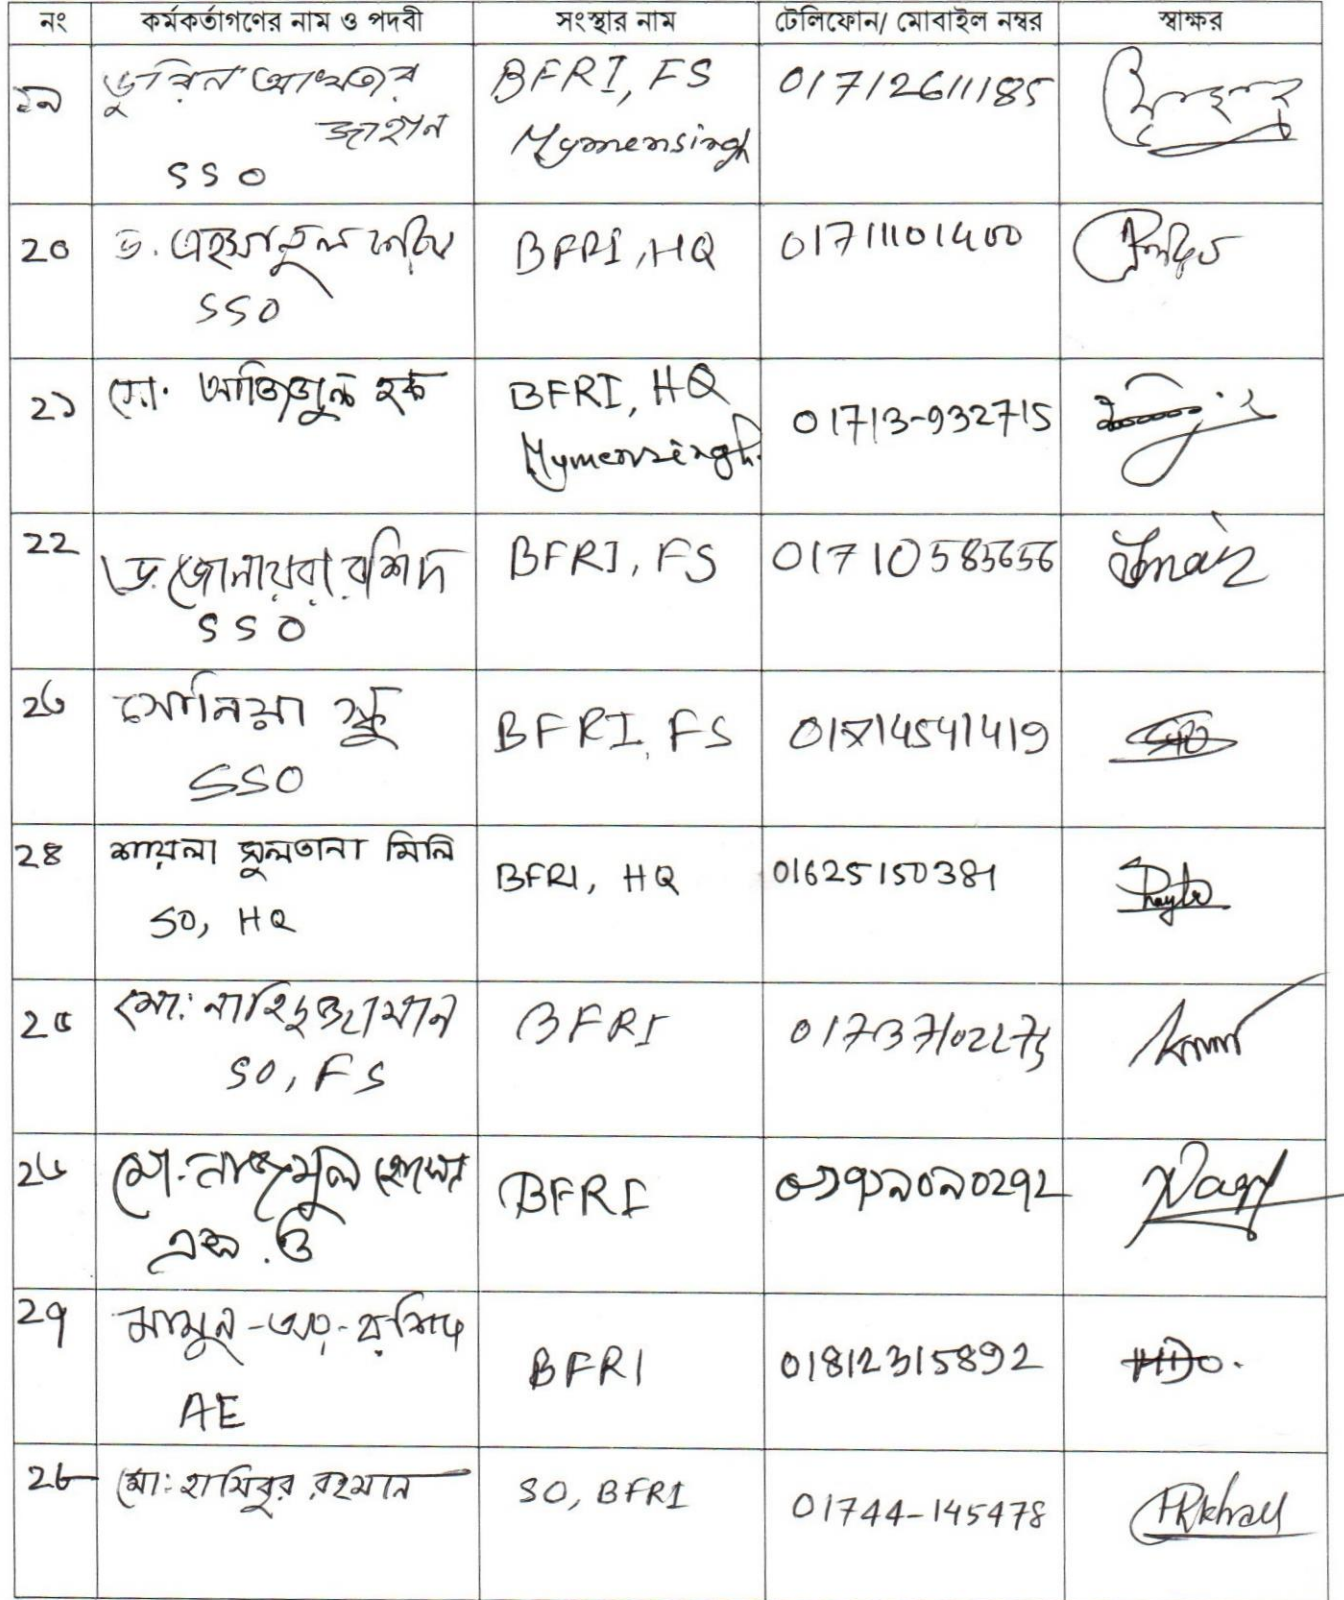 নং কর্মকর্তাগণের নাম ও পদবী সংস্থার নাম টেলিফোন/ মোবাইল নম্বর স্বাক্ষর
১৯ ডুরিন আখতার জাহান SSO BFRI, FS Mymensingh 01712611185
২০ ড. এহসানুল করিম SSO BFRI, HQ 01711101400
২১ মো. আজিজুল হক BFRI, HQ Mymensingh. 01713-932715
২২ ড. জোনায়রা রশিদ SSO BFRI, FS 01710585656
২৩ সোনিয়া স্কু SSO BFRI, FS 01714541419
২৪ শায়লা সুলতানা মিলি SO, HQ BFRI, HQ 01625150381
২৫ মো: নাহিদুজ্জামান SO, FS BFRI
২৬ মো. নাজমুল হোসেন এস.ও BFRI ০১৭১৯০৯০২৭২
২৭ মামুন-অর-রশিদ AE BFRI 01812315892
২৮ মো: হাসিবুর রহমান SO, BFRI 01744-145478